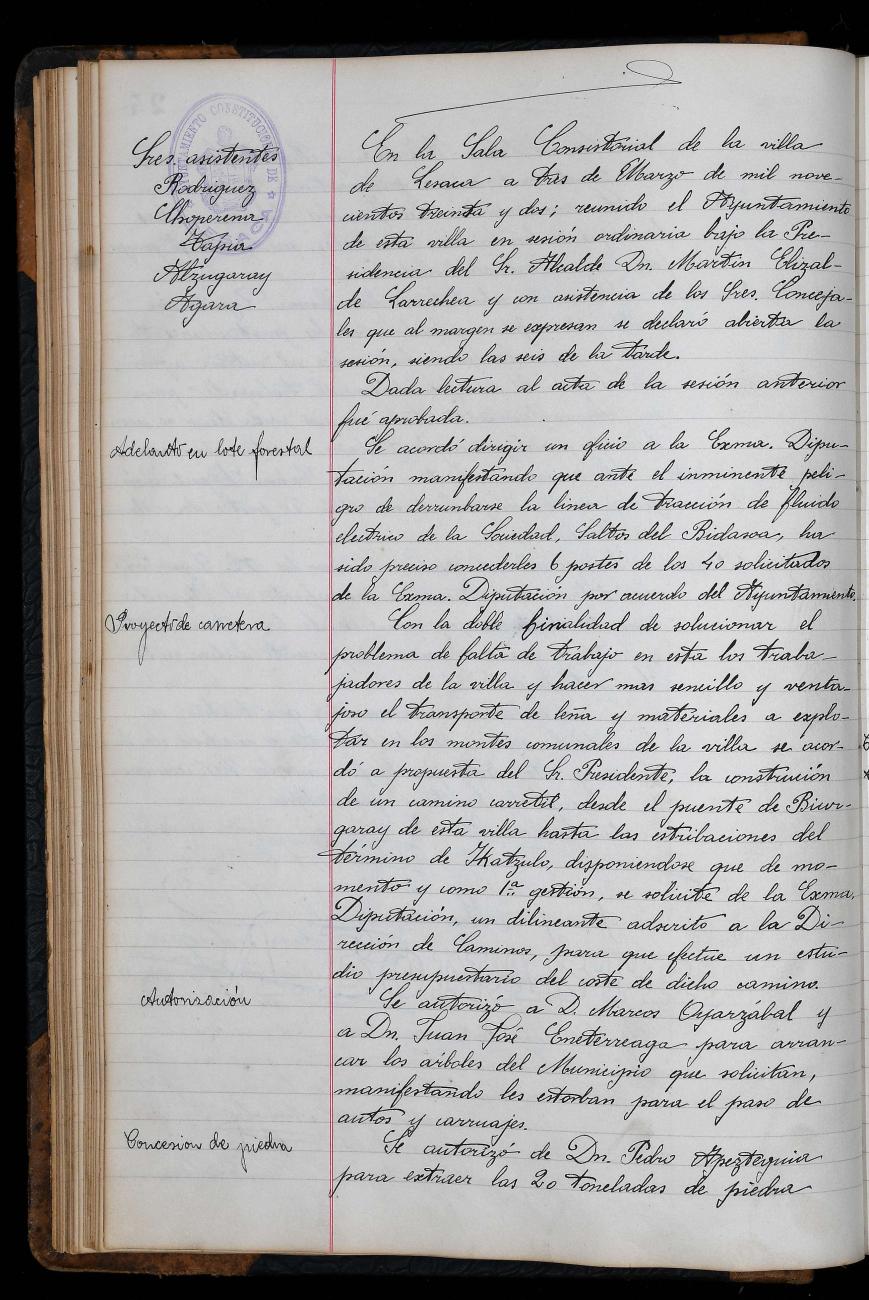 AYUNTAMIENTO CONSTITUCIONAL DE
Sres. asistentes
Rodriguez
Choperena
Tapia
Alzugaray
Agara
En la Sala Consistorial de la villa
de Lesaca a tres de Marzo de mil nove-
cientos treinta y dos; reunido el Ayuntamiento
de esta villa en sesión ordinaria bajo la Pre-
sidencia del Sr. Alcalde Dn. Martin Elizal-
de Larrechea y con asistencia de los Sres. Conceja-
les que al margen se expresan se declaró abierta la
sesión, siendo las seis de la tarde.
Dada lectura al acta de la sesión anterior
fué aprobada.
Adelanto en lote forestal
Se acordó dirigir un oficio a la Exma. Dipu-
tación manifestando que ante el inminente peli-
gro de derrunbarse la linea de tracción de fluido
electrico de la Sociedad, Saltos del Bidasoa, ha
sido preciso concederles 6 postes de los 40 solicitados
de la Exma. Diputación por acuerdo del Ayuntamiento.
Proyecto de carretera
Con la doble finalidad de solucionar el
problema de falta de trabajo en esta los traba-
jadores de la villa y hacer mas sencillo y venta-
joso el transporte de leña y materiales a explo-
tar en los montes comunales de la villa se acor-
dó a propuesta del Sr. Presidente, la construción
de un camino carretil, desde el puente de Biur-
garay de esta villa hasta las estribaciones del
término de Ikatzulo, disponiendose que de mo-
mento y como 1ª gestión, se solicite de la Exma.
Diputación, un dilineante adscrito a la Di-
rección de Caminos, para que efectue un estu-
dio presupuestario del coste de dicho camino.
Autorisación
Se autorizó a D. Marcos Oyarzábal y
a Dn. Juan José Eneterreaga para arran-
car los arboles del Municipio que solicitan,
manifestando les estorban para el paso de
autos y carruajes.
Concesion de piedra
Se autorizó de Dn. Pedro Apezteguia
para extraer las 20 toneladas de piedra